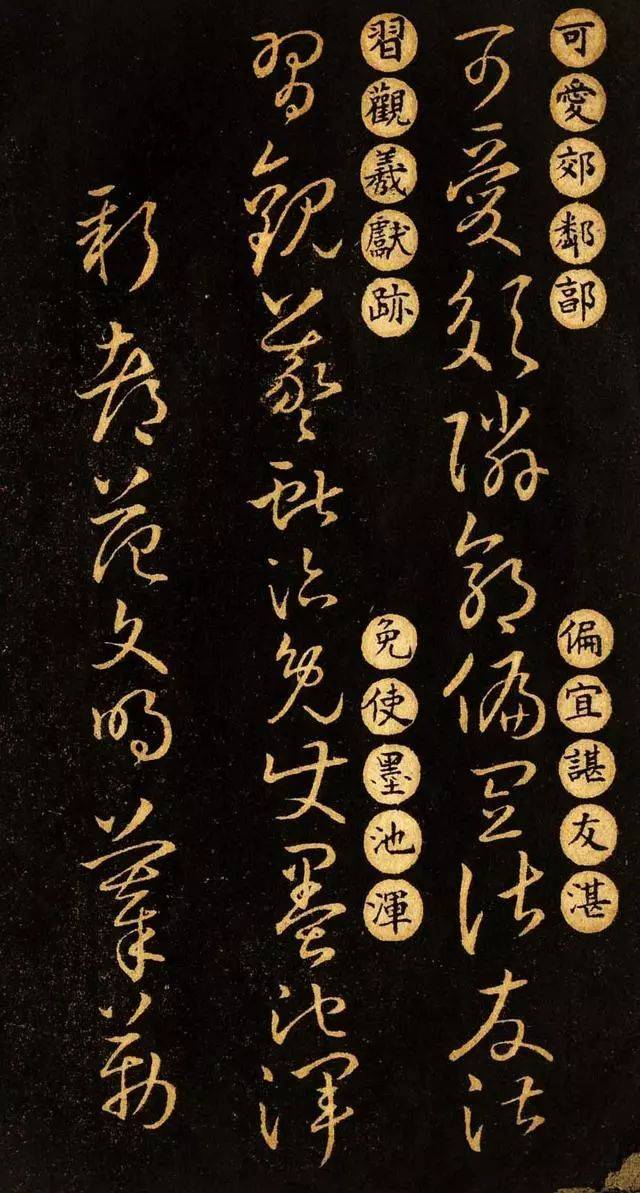 可愛郊鄰部
偏宜諶友湛
可愛郊鄰部偏宜諶友湛
習觀羲獻跡
免使墨池渾
習觀羲獻跡免使墨池渾
新都范文明摹勒